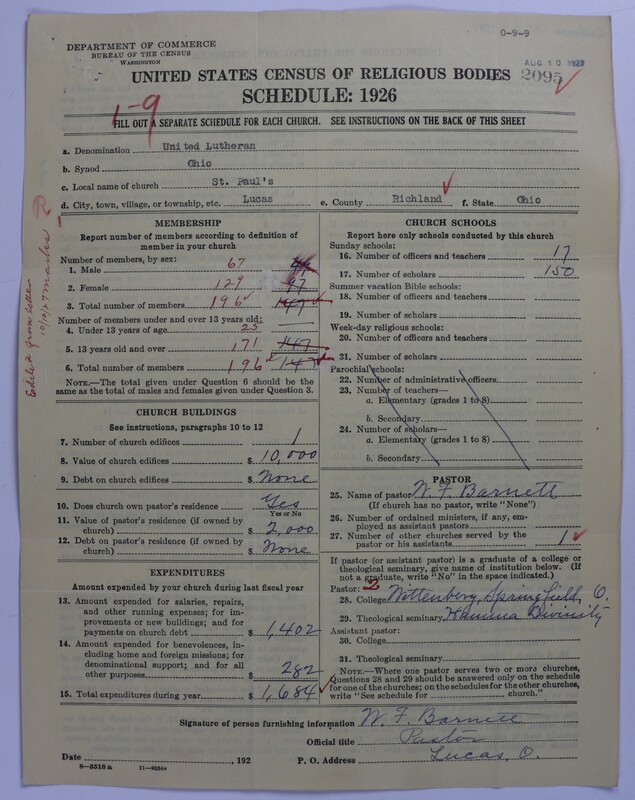 0-9-9
DEPARTMENT OF COMMERCE
BUREAU OF THE CENSUS
WASHINGTON
AUG 10 1927
2095
UNITED STATES CENSUS OF RELIGIOUS BODIES
SCHEDULE: 1926
1-9
FILL OUT A SEPARATE SCHEDULE FOR EACH CHURCH. SEE INSTRUCTIONS ON THE BACK OF THIS SHEET
a. Denomination United Lutheran
b. Synod Ohio
c. Local name of church St. Paul's
d. City, town, village, or township, etc. Lucas e. County Richland f. State Ohio
MEMBERSHIP
Report number of members according to definition of
member in your church
Number of members, by sex:
1. Male 67
2. Female 129 97
3. Total number of members 196 147
Number of members under and over 13 years old:
4. Under 13 years of age 25
5. 13 years old and over 171 147
6. Total number of members 196 147
NOTE.—The total given under Question 6 should be the
same as the total of males and females given under Question 3.
CHURCH BUILDINGS
See instructions, paragraphs 10 to 12
7. Number of church edifices 1
8. Value of church edifices $ 10,000
9. Debt on church edifices $ None
10. Does church own pastor's residence? Yes
Yes or No
11. Value of pastor's residence (if owned by
church) $ 2,000
12. Debt on pastor's residence (if owned by
church) $ None
EXPENDITURES
Amount expended by your church during last fiscal year
13. Amount expended for salaries, repairs,
and other running expenses; for im-
provements or new buildings; and for
payments on church debt $ 1,402
14. Amount expended for benevolences, in-
cluding home and foreign missions; for
denominational support; and for all
other purposes $ 282
15. Total expenditures during year $ 1,684
CHURCH SCHOOLS
Report here only schools conducted by this church
Sunday schools:
16. Number of officers and teachers 17
17. Number of scholars 150
Summer vacation Bible schools:
18. Number of officers and teachers
19. Number of scholars
Week-day religious schools:
20. Number of officers and teachers
21. Number of scholars
Parochial schools:
22. Number of administrative officers
23. Number of teachers—
a. Elementary (grades 1 to 8)
b. Secondary
24. Number of scholars—
a. Elementary (grades 1 to 8)
b. Secondary
PASTOR
25. Name of pastor W. F. Barnett
(If church has no pastor, write "None")
26. Number of ordained ministers, if any, em-
ployed as assistant pastors
27. Number of other churches served by the
pastor or his assistants 1
If pastor (or assistant pastor) is a graduate of a college or
theological seminary, give name of institution below. (If
not a graduate, write "No" in the space indicated.)
Pastor: 2
28. College Wittenberg, Springfield, O.
29. Theological seminary Hamma Divinity
Assistant pastor:
30. College
31. Theological seminary
NOTE.—Where one pastor serves two or more churches,
Questions 28 and 29 should be answered only on the schedule
for one of the churches; on the schedules for the other churches,
write "See schedule for church."
Signature of person furnishing information W. F. Barnett
Official title Pastor
Date , 192 P. O. Address Lucas, O.
8—5516 a